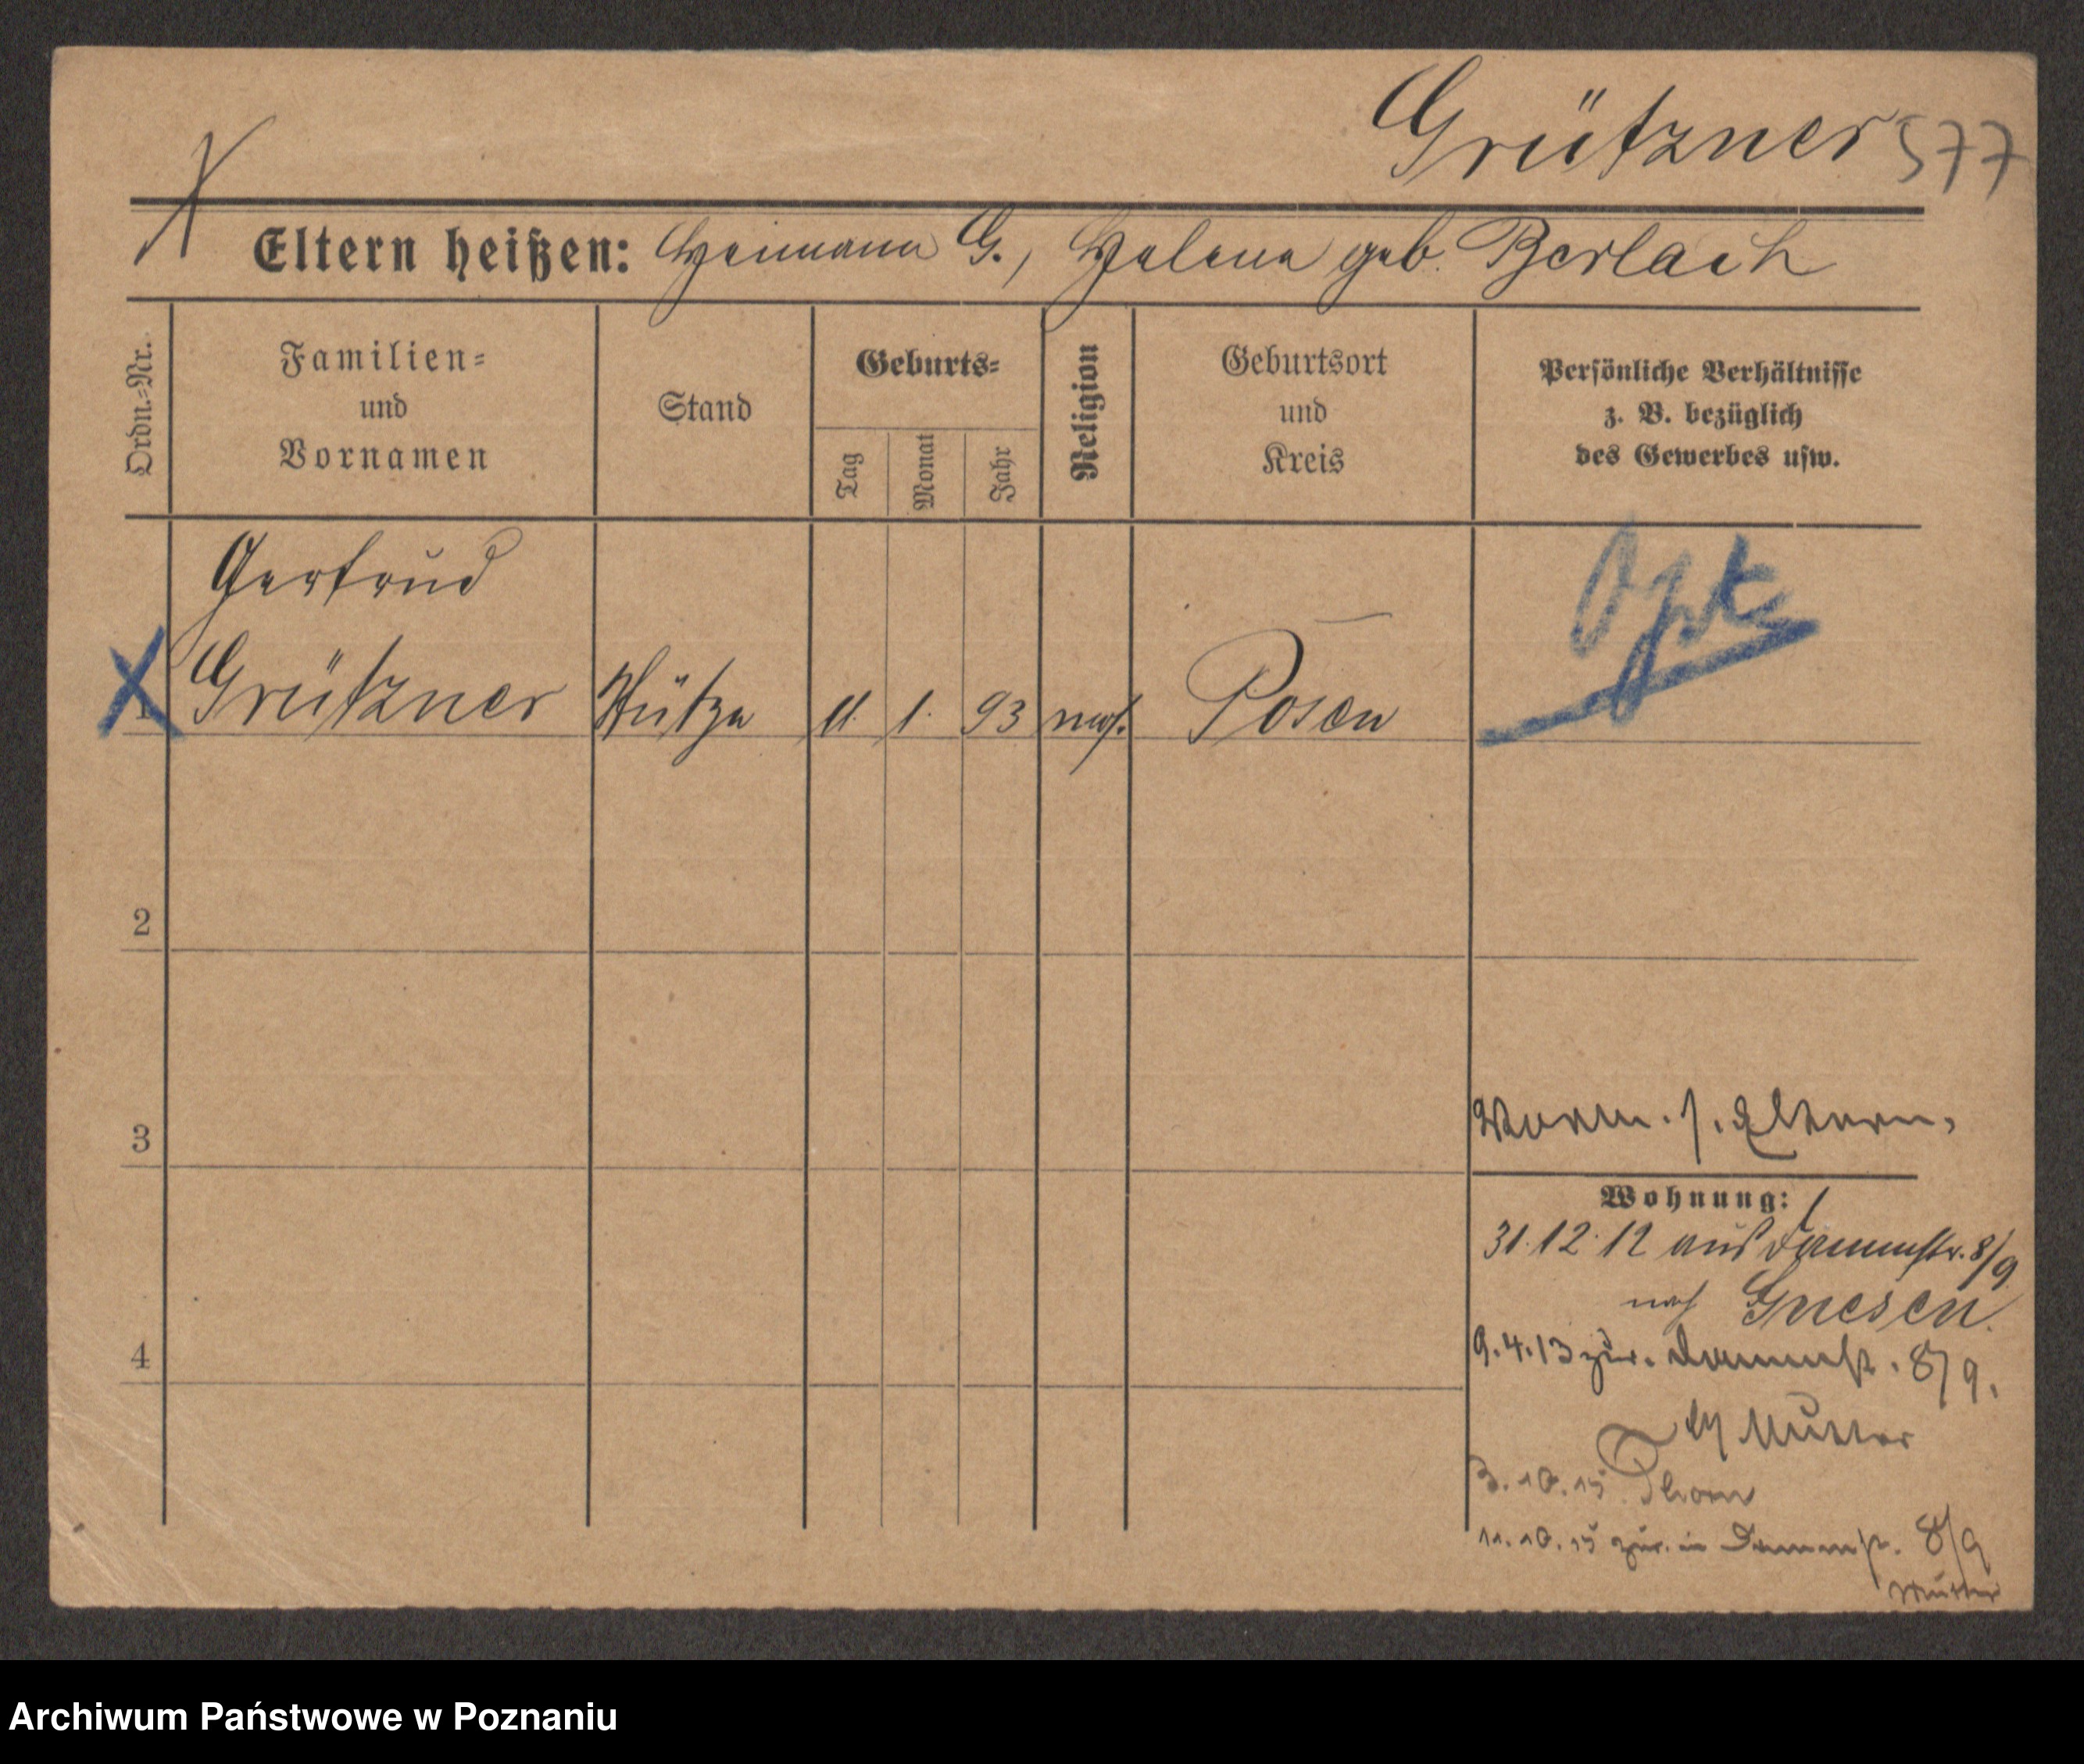 Grützner 577
Eltern heißen: Hermann G., Helene geb. Berlach
Ordn.-Nr.
Familien-
und
Vornamen
Stand
Geburts-
Tag
Monat
Jahr
Religion
Geburtsort
und
Kreis
Persönliche Verhältnisse
z. B. bezüglich
des Gewerbes usw.
Gertrud
1 Grützner Stütze 11. 1. 93 mos. Posen
2
3
4
Vorm. s. Eltern.
Wohnung:
31.12.12 aus Dammstr. 8/9
nach Gnesen.
9.4.13 zur. Dammstr. 8/9.
Mutter
3.10.15 Thorn
11.10.15 zur. in Dammstr. 8/9
Mutter
Archiwum Państwowe w Poznaniu